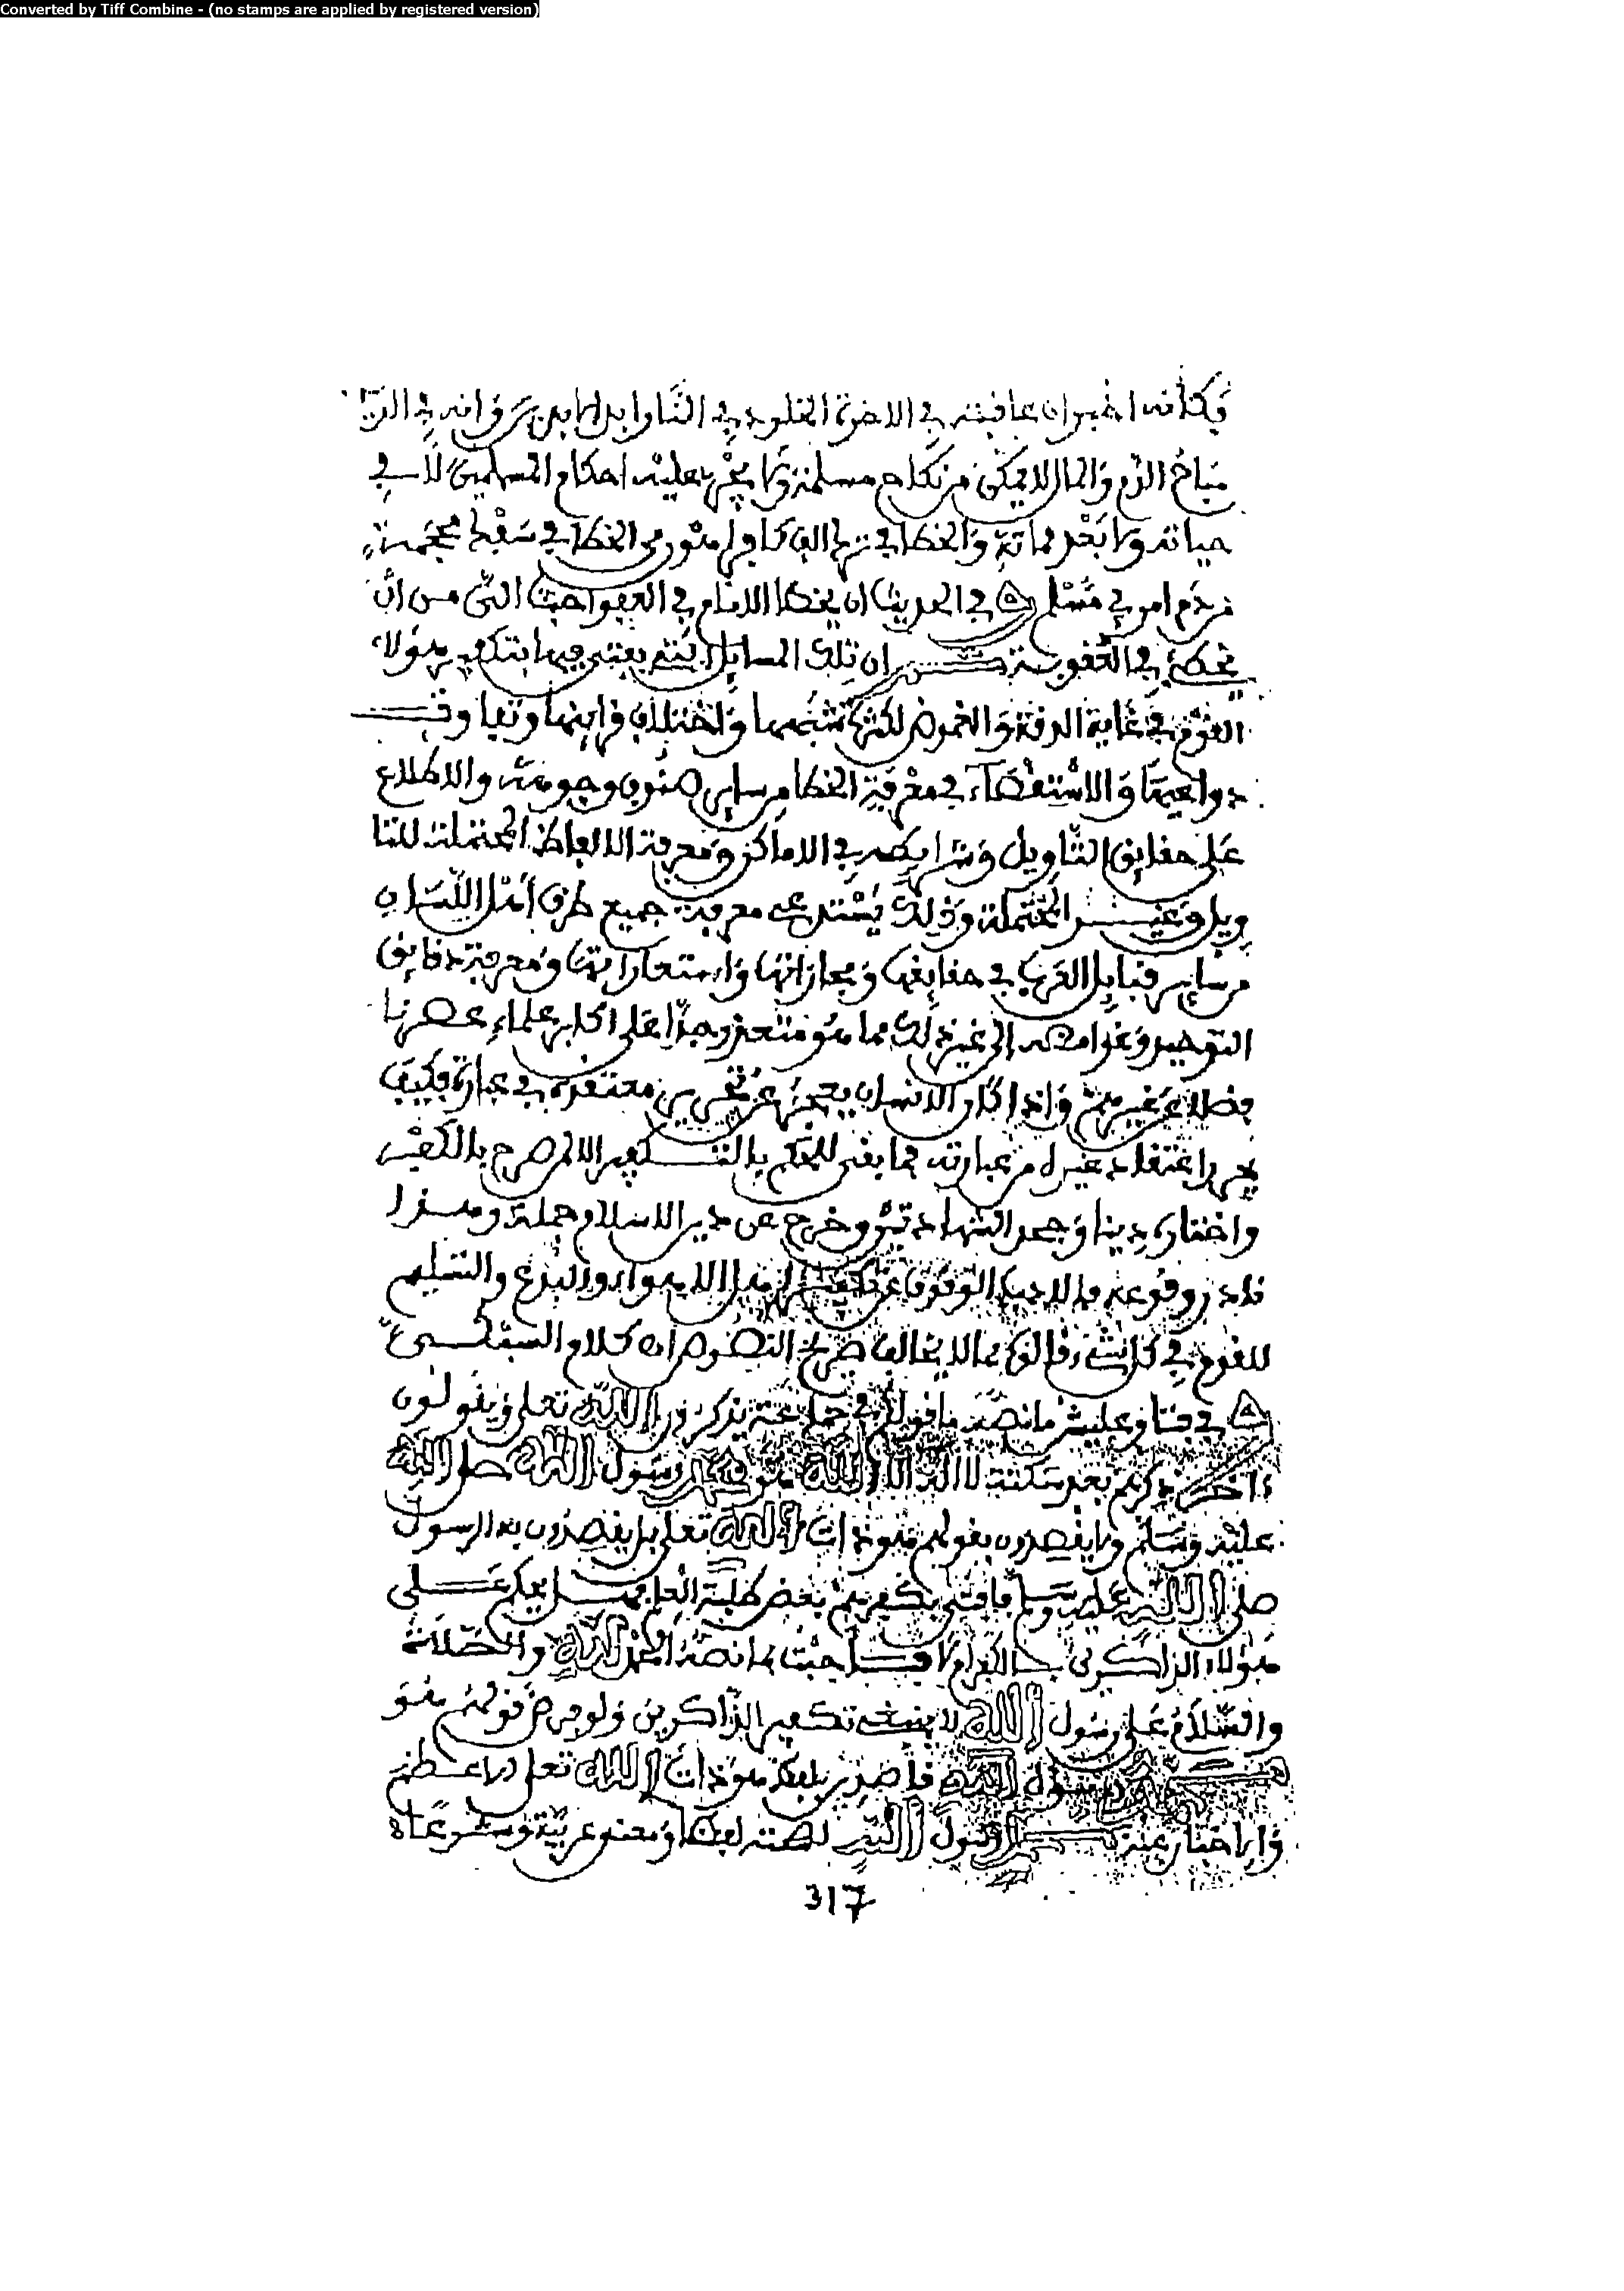 Converted by Tiff Combine - (no stamps are applied by registered version)
فكأنه اخبر ان عاقبته في الاخرة الخلود في النار ابد الابدين وانه في الدنيا
مباح الدم والمال لا يمكن من نكاح مسلمة ولا يجرى عليه احكام المسلمين لا في
حياته ولا بعد مماته والخطا في ترك الف كافر اهون من الخطا في سفك محجمة
من دم امرئ مسلم في الحديث ان يخطا الامام في العفو احب الى من ان
يخطئ في العقوبة ان تلك المسايل التي يفتى فيها بتكفير هؤلاء
القوم في غاية الدقة والغموض لكثرة شبهها واختلاف قراينها وتفاوت
دواعيها والاستقصاء في معرفة الخطا من ساير صنوف وجوهه والاطلاع
على حقايق التاويل وشرايطه في الاماكن ومعرفة الالفاظ المحتملة للتا
ويل وغير المحتملة وذلك يستدعى معرفة جميع طرق اهل اللسان
من ساير قبايل العرب في حقايقها ومجازاتها واستعاراتها ومعرفة دقايق
التوحيد وغوامضه الى غير ذلك مما هو متعذر جدا على اكابر علماء عصرنا
فضلا عن غيرهم واذا كان الانسان يعجز عن تحرير معتقده في عبارة فكيف
يحرر اعتقاد غيره من عبارته فما بقى للحكم بالتكفير الا لمن صرح بالكفر
واختاره دينا وجحد الشهادتين وخرج عن دين الاسلام جملة وهذا
نادر وقوعه فالادب الوقوف عن تكفير اهل الاهواء والبدع والتسليم
للقوم في كل شئ قالوه مما لا يخالف صريح النصوص اه كلام السبكى
في فتاوى عليش ما نصه ما قولكم في جماعة يذكرون الله تعلى ويقولون
ءاخر ذكرهم بعد سكتة لا اله الا الله هو محمد رسول الله صلى الله
عليه وسلم ولا يقصدون بقولهم هو ذات الله تعلى بل يقصدون به الرسول
صلى الله عليه وسلم فافتى بكفرهم بعض طلبة العلم فهل يحكم على
هؤلاء الذاكرين بالكفر ام لا فاجبت بما نصه الحمد لله والصلاة
والسلام على رسول الله لا ينبغى تكفير الذاكرين ولو فرض قولهم هو
محمد رسول الله قاصدين بلفظ هو ذات الله تعلى
وان اخبار عنه محمد رسول الله لصحته لفظا ومعنى عربية وشرعا اه
317